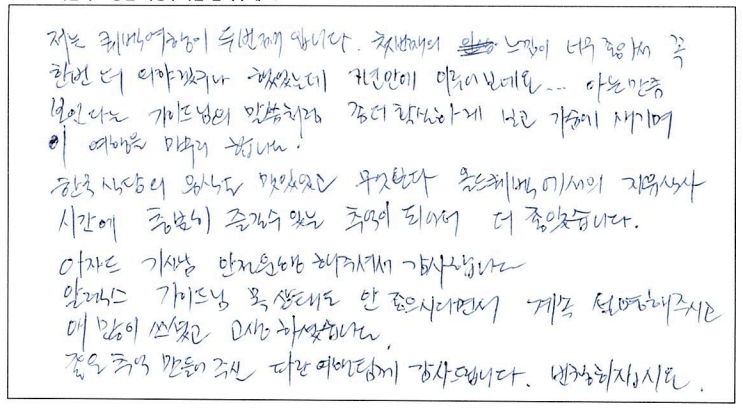 저는 퀘벡여행이 두번째 입니다. 첫번째의 느낌이 너무 좋아서 꼭
한번 더 와야겠거니 했었는데 1년만에 이루어 보네요... 아는만큼
보인다는 가이드님의 말씀처럼 좀더 확실하게 보고 가슴에 새기며
이 여행을 마무리 합니다.
한국 식당의 음식도 맛있었고 무엇보다 올드퀘벡에서의 자유식사
시간에 충분히 즐길수 있는 추억이 되어서 더 좋았습니다.
기사님 안전운행 해주셔서 감사합니다
알렉스 가이드님 목 상태도 안 좋으시다면서 계속 설명해주시고
애 많이 쓰셨고 고생하셨습니다.
좋은 추억 만들어 주신 여행팀께 감사드립니다. 번창하십시요.